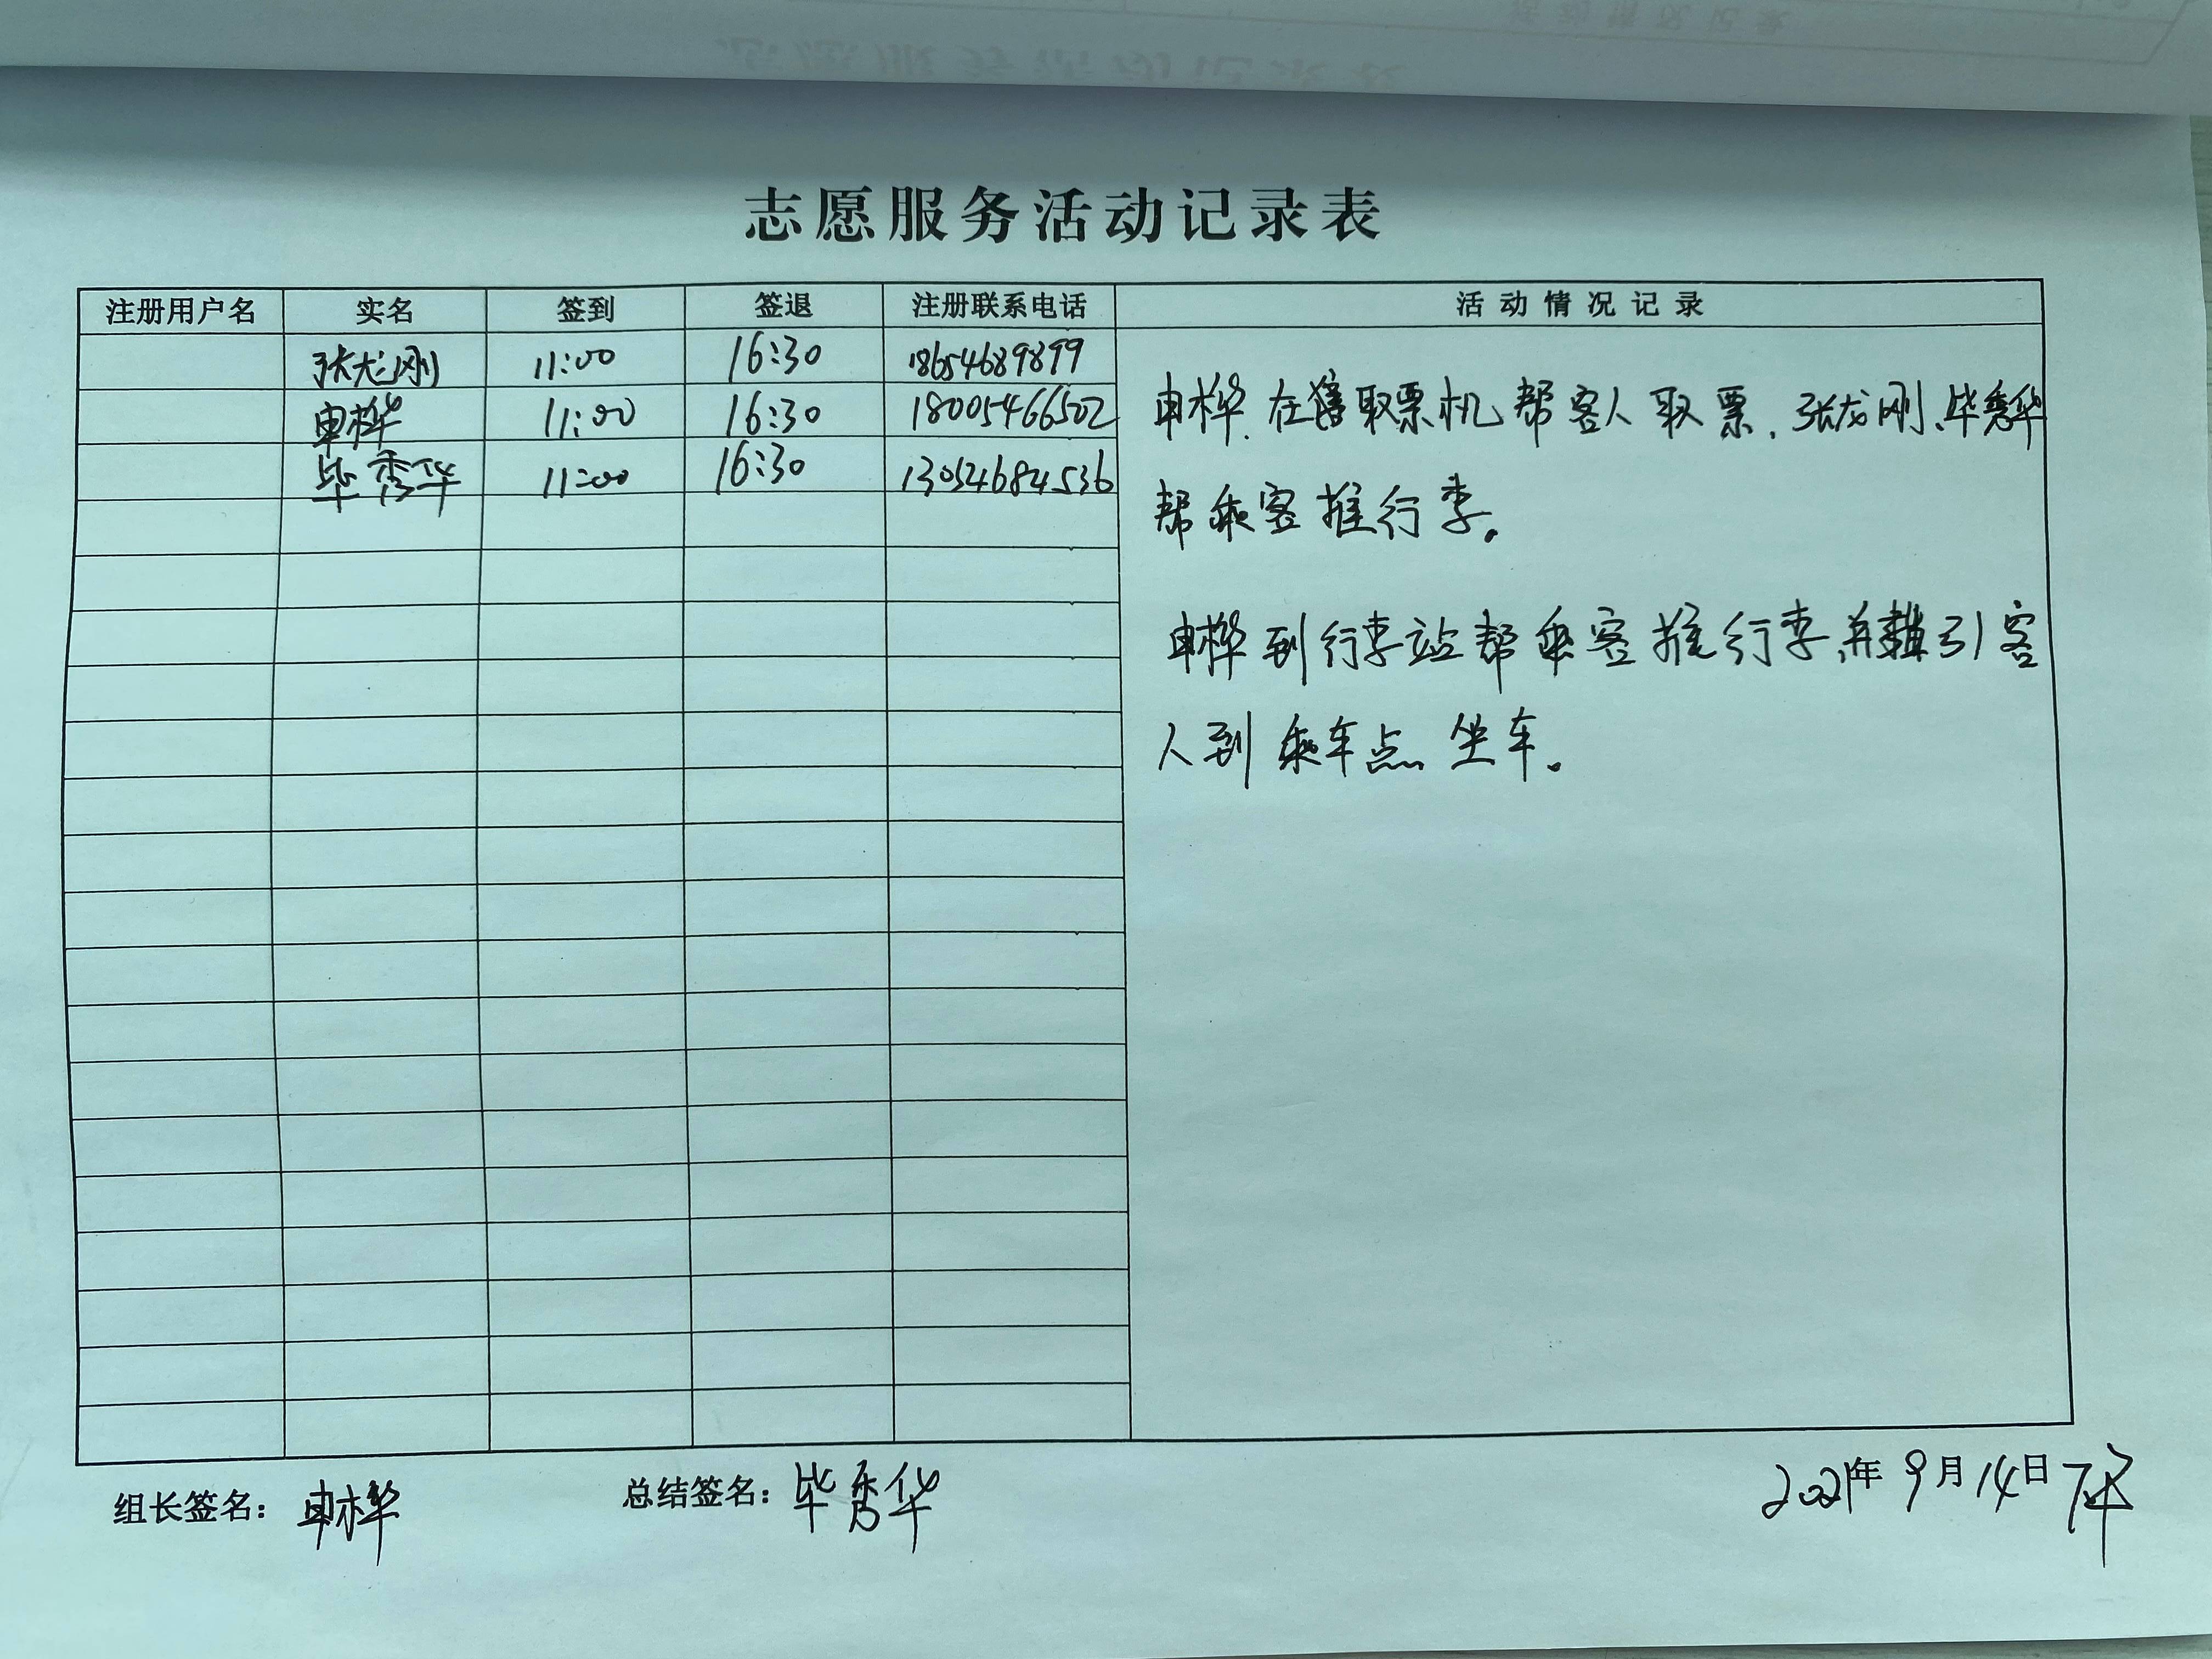 志愿服务活动记录表
注册用户名 实名 签到 签退 注册联系电话 活动情况记录
张龙刚 11:00 16:30 18654689899
申桦 11:00 16:30 18005466502
毕秀华 11:00 16:30 13054684536
申桦.在售取票机帮客人取票.张龙刚、毕秀华
帮乘客推行李。
申桦到行李站帮乘客推行李,并引客
人到乘车点坐车。
组长签名：申桦 总结签名：毕秀华 2021年9月14日下午